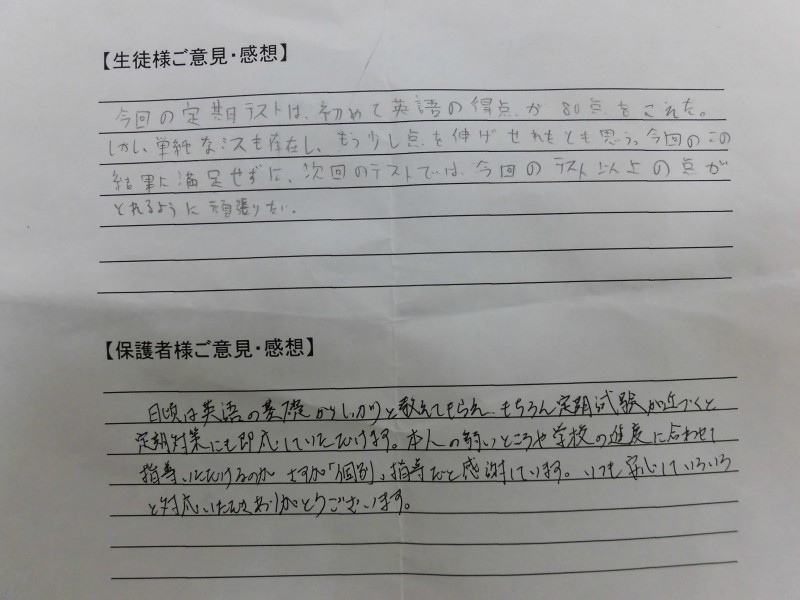 【生徒様ご意見・感想】
今回の定期テストは、初めて英語の得点が80点をこえた。
しかし、単純なミスも存在し、もう少し点を伸ばせれたとも思う。今回のこの
結果に満足せずに、次回のテストでは、今回のテスト以上の点が
とれるように頑張りたい。
【保護者様ご意見・感想】
日頃は英語の基礎からしっかりと教えてもらえ、もちろん定期試験が近づくと
定期対策にも即応していただけます。本人の弱いところや学校の進度に合わせて
指導いただけるのが さすが「個別」指導だと感謝しています。いつも安心していろいろ
と対応いただきありがとうございます。